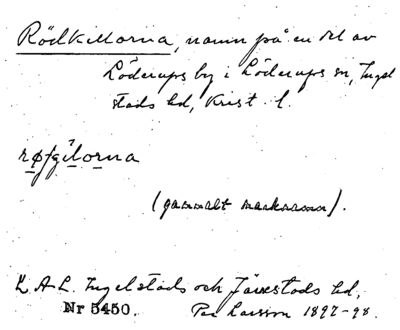 Rödkillorna, namn på en del av
Löderups by i Löderups sn, Ingel
stads hd, Krist. l.
røfgilorna
(gammalt marknamn).
L. A. L. Ingelstads och Järrestads hd,
Nr 5450. Per Larsson 1897-98.